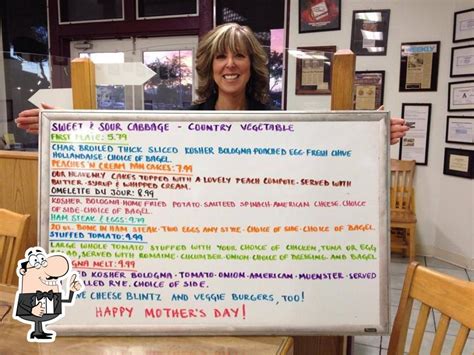 SWEET & SOUR CABBAGE - COUNTRY VEGETABLE
FIRST PLATE: 5.79
CHAR BROILED THICK SLICED KOSHER BOLOGNA POACHED EGG FRESH CHIVE
HOLLANDAISE - CHOICE OF BAGEL
PEACHES 'N CREAM PAN CAKES: 7.99
OUR HEAVENLY CAKES TOPPED WITH A LOVELY PEACH COMPOTE - SERVED WITH
BUTTER - SYRUP & WHIPPED CREAM.
OMELETTE DU JOUR: 8.99
KOSHER BOLOGNA HOME FRIED POTATO - SAUTEED SPINACH - AMERICAN CHEESE. CHOICE
OF SIDE - CHOICE OF BAGEL
HAM STEAK & EGGS: 9.79
20 oz. BONE IN HAM STEAK - TWO EGGS ANY STYLE. CHOICE OF SIDE - CHOICE OF BAGEL
STUFFED TOMATO: 9.99
LARGE WHOLE TOMATO STUFFED WITH YOUR CHOICE OF CHICKEN, TUNA OR EGG
SALAD, SERVED WITH ROMAINE - CUCUMBER - ONION - CHOICE OF DRESSING AND BAGEL
MELT: 9.99
KOSHER BOLOGNA - TOMATO - ONION - AMERICAN - MUENSTER - SERVED
RYE. CHOICE OF SIDE.
CHEESE BLINTZ AND VEGGIE BURGERS, TOO!
HAPPY MOTHER'S DAY!